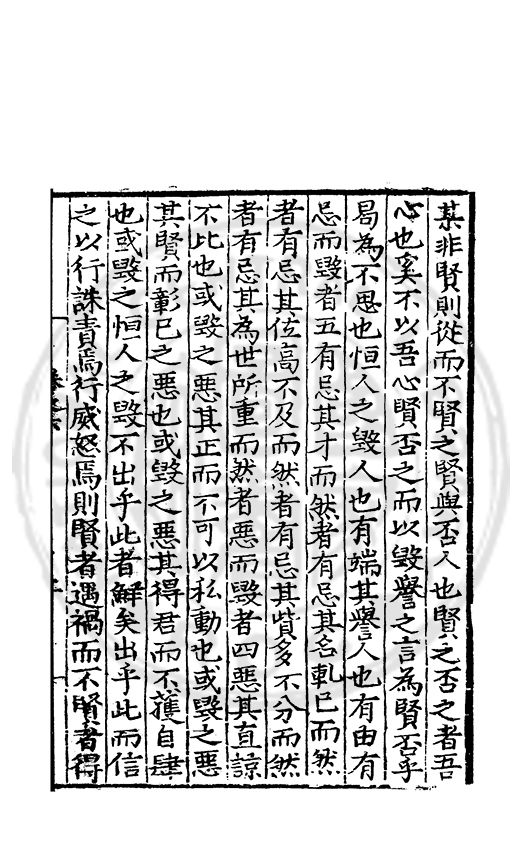 某非賢則從而不賢之賢與否人也賢之否之者吾
心也奚不以吾心賢否之而以毀譽之言為賢否乎
曷為不思也恒人之毀人也有端其譽人也有由有
忌而毀者五有忌其才而然者有忌其名軋已而然
者有忌其位高不及而然者有忌其貲多不分而然
者有忌其為世所重而然者惡而毀者四惡其直諒
不比也或毀之惡其正而不可以私動也或毀之惡
其賢而彰已之惡也或毀之惡其得君而不獲自肆
也或毀之恒人之毀不出乎此者鮮矣出乎此而信
之以行誅責焉行威怒焉則賢者遇禍而不賢者得